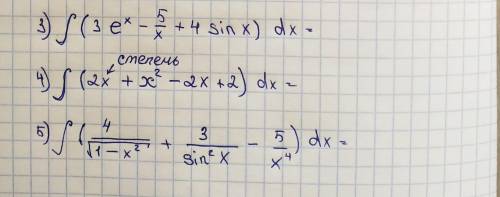 3) ∫ (3 e^x - 5/x + 4 sin x) dx =
степень
4) ∫ (2x + x^2 - 2x + 2) dx =
5) ∫ (4/√(1-x^2) + 3/sin^2 x - 5/x^4) dx =